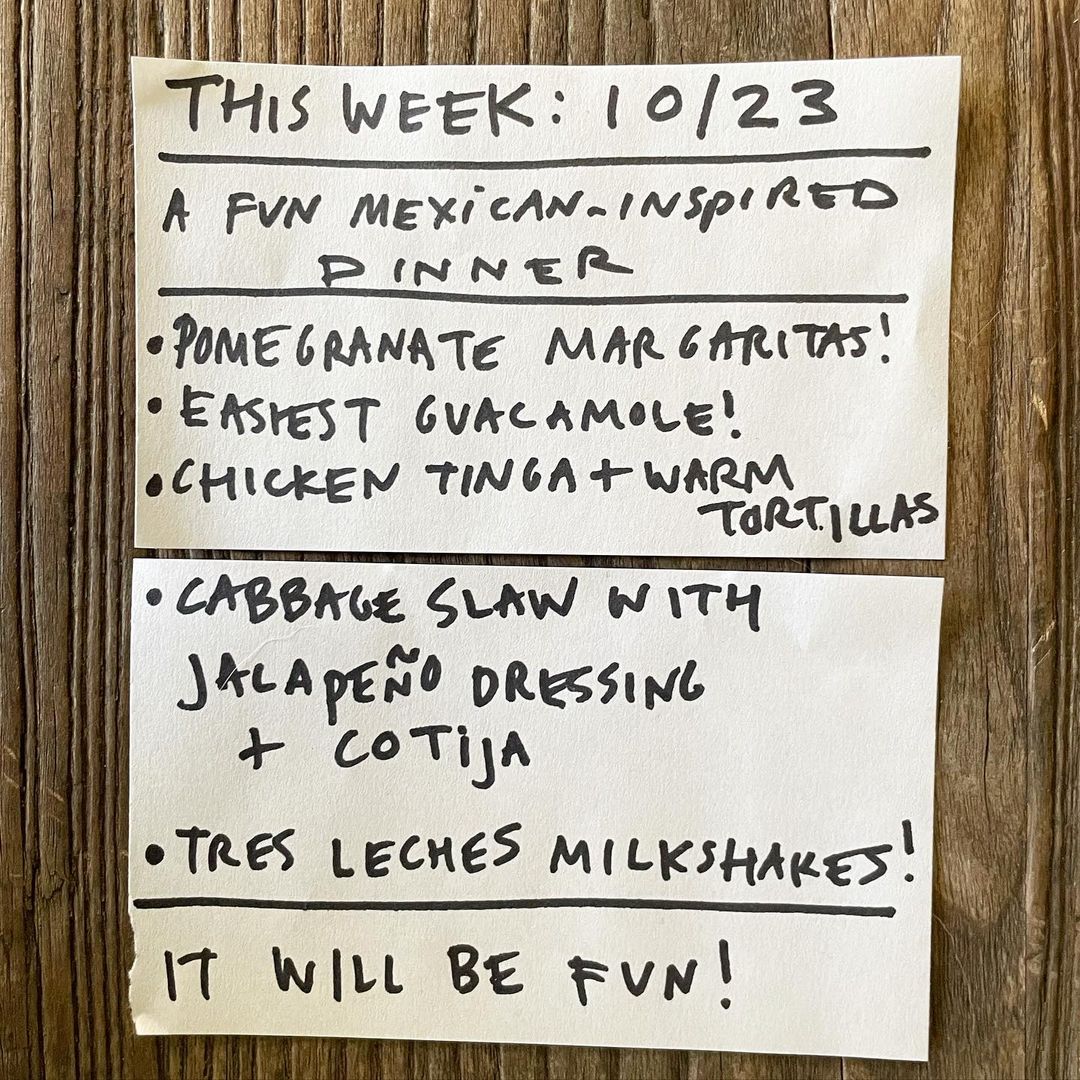 THIS WEEK: 10/23
A FUN MEXICAN-INSPIRED
DINNER
• POMEGRANATE MARGARITAS!
• EASIEST GUACAMOLE!
• CHICKEN TINGA + WARM
TORTILLAS
• CABBAGE SLAW WITH
JALAPEÑO DRESSING
+ COTIJA
• TRES LECHES MILKSHAKES!
IT WILL BE FUN!